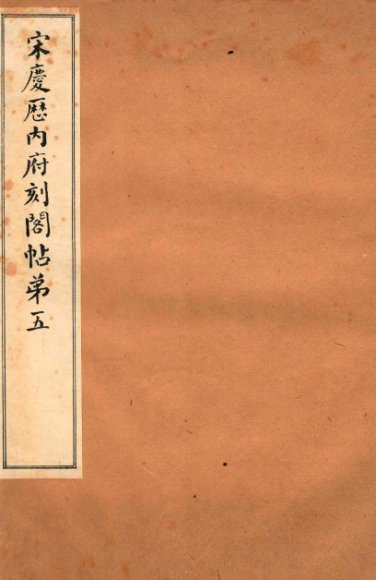 宋慶歷内府刻閣帖弟五